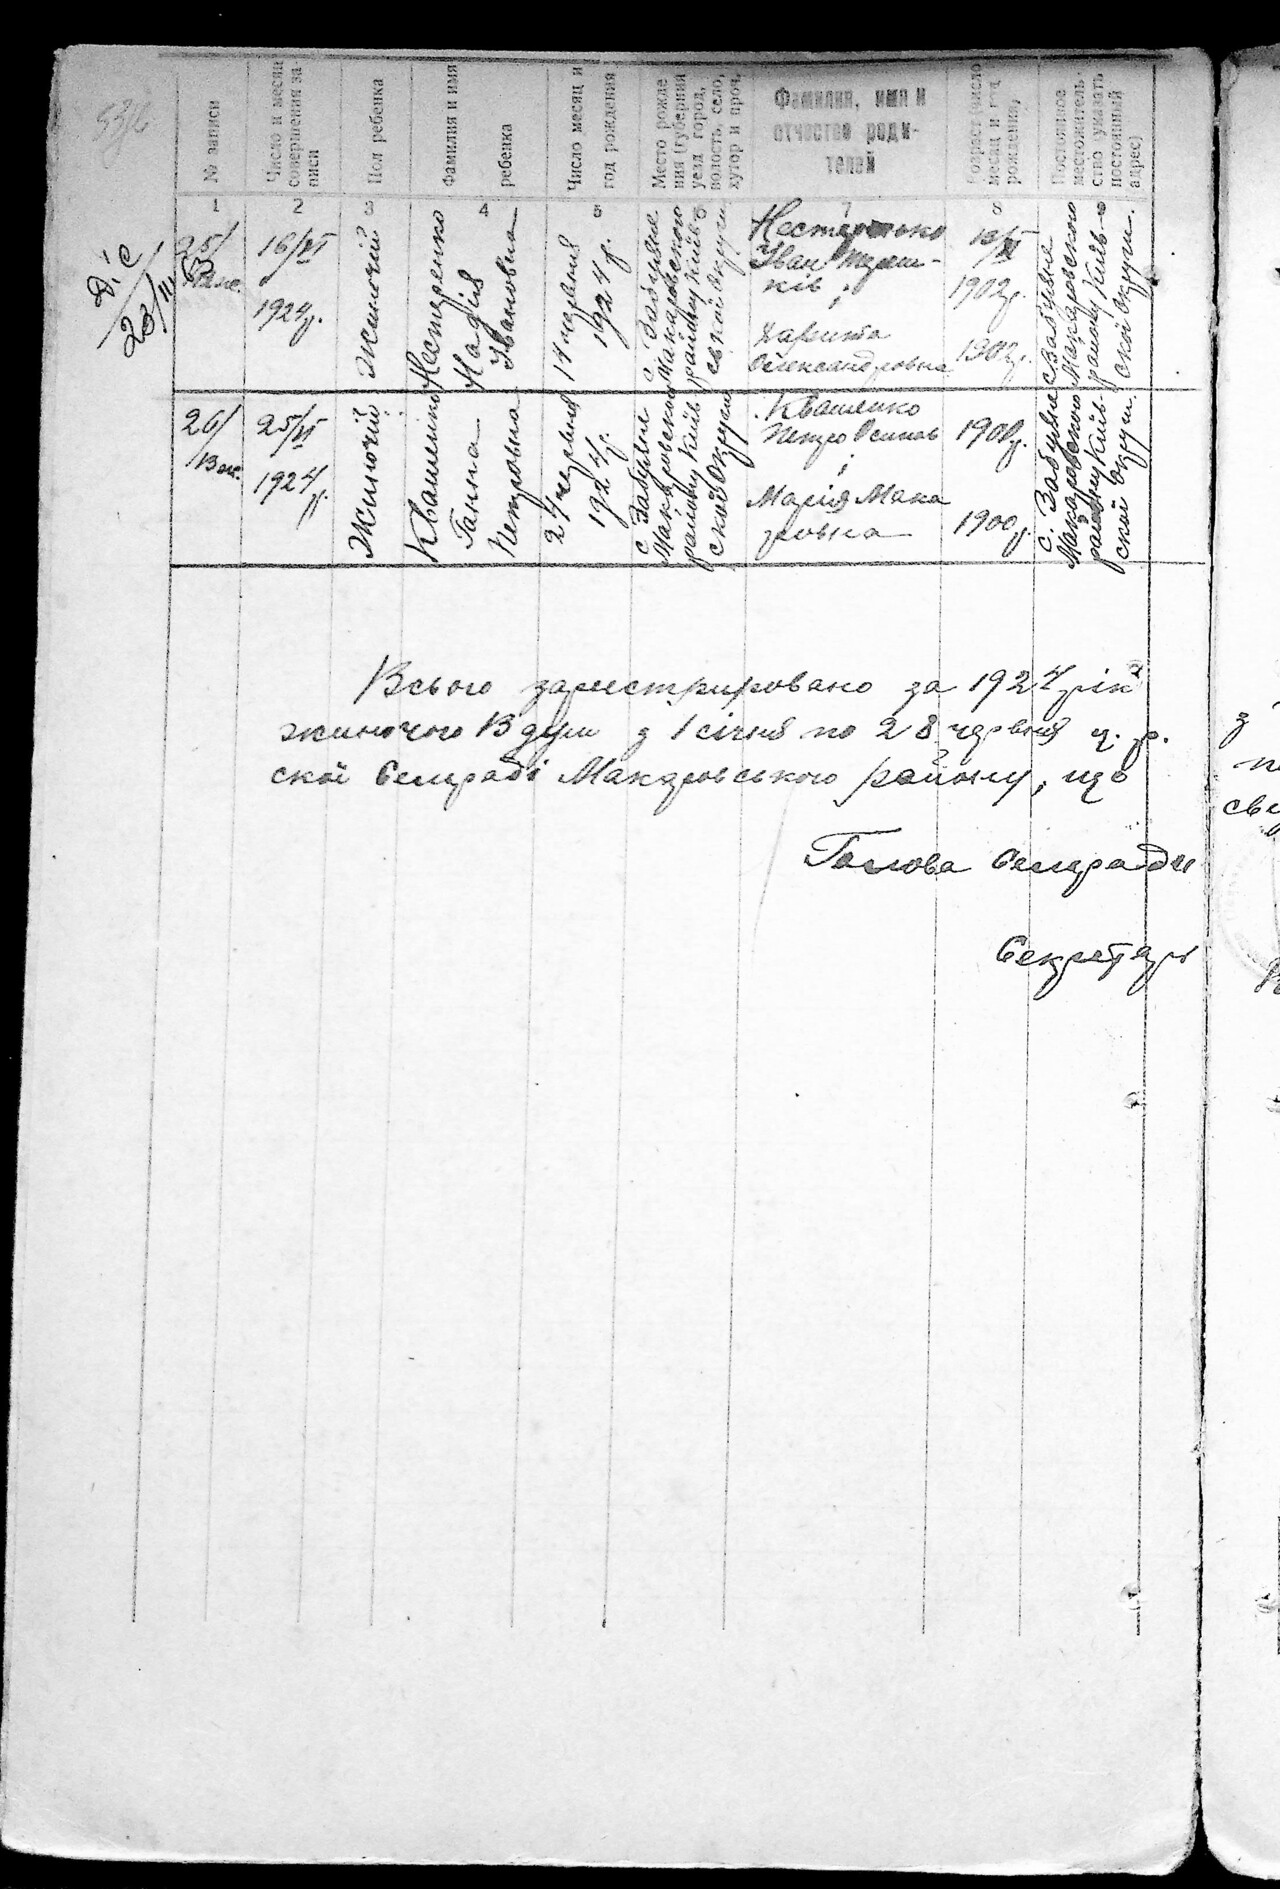 № записи
Число и месяц
совершения за-
писи
Пол ребенка
Фамилия и имя
ребенка
Число месяц и
год рождения
Место рожде
ния (губерния
уезд город,
волость, село,
хутор и проч.
Фамилия, имя и
отчество роди-
телей
Возраст (число
месяц и год
рождения,
Постоянное
местожитель-
ство указать
постоянный
адрес)
1 2 3 4 5 6 7 8 9
23/III
25/
16/VI
1924р.
Жиночий
Нестеренко
Надія
Івановна
14 червня
1924 р.
с.
Макаровского
району Київ-
ськой округи
Нестеренко
Іван
ків
;
Харита
Олександровна
1902р.
1902р.
с.
Макаровского
району Київ-
ской округи.
26/
13 жи.
25/VI
1924
р.
Жиночий
Квашенко
Ганна
Петровна
24 червня
1924
р.
с.
Макаровского
району Київ
ской округи
Квашенко
Петро Осипов
;
Марія Мака
ровна
1900р.
1900р.
с.
Макаровского
району Київ-
ской округи.
Всього зариестрировано за 1924 рік
жиночого 13 душ з 1 січня по 28 червня ц. р.
ской Сельраді Макаровського району, що
Голова Сельради
Секретарь
з